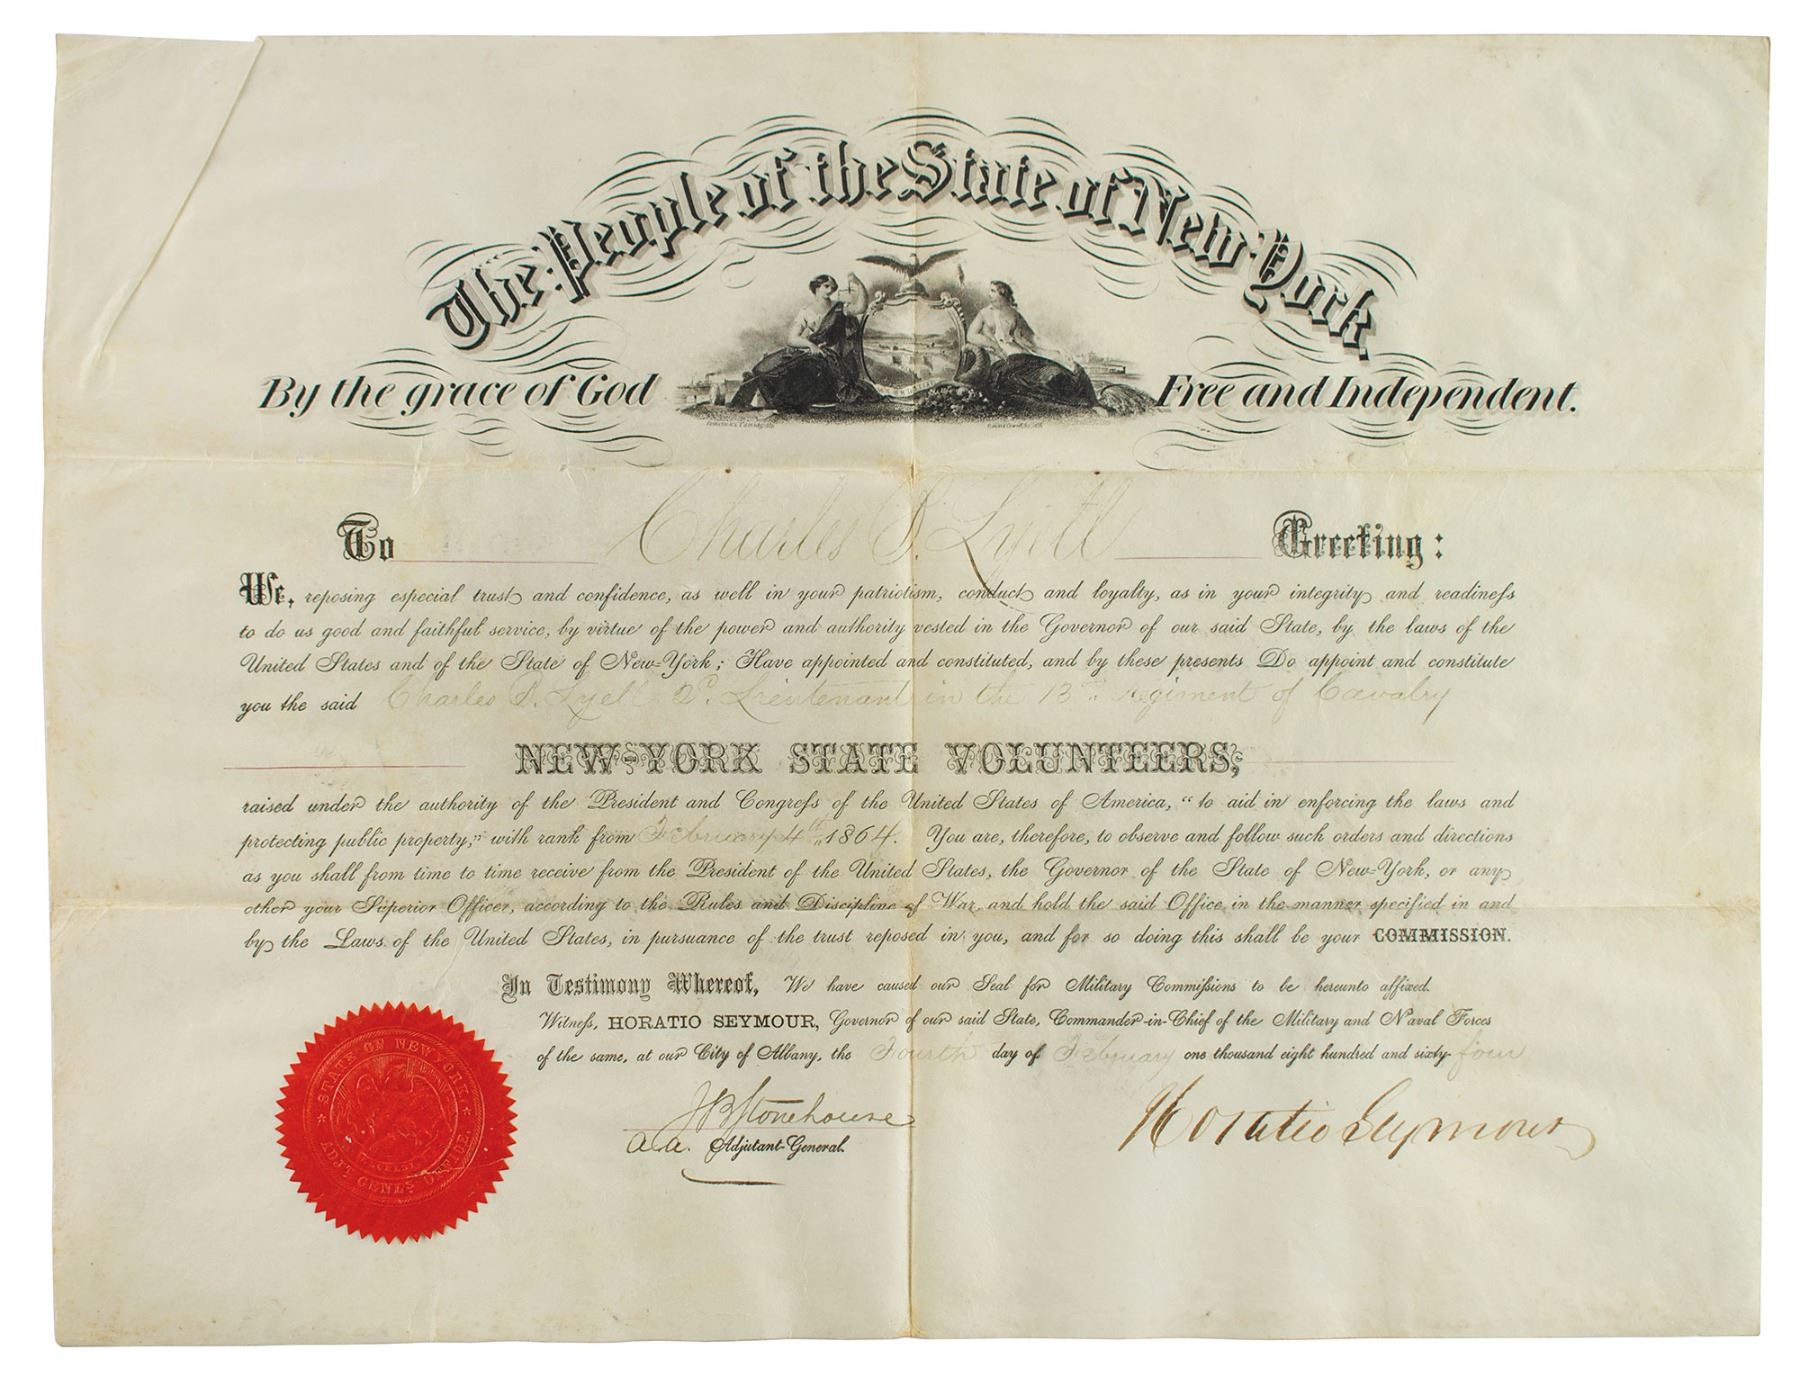 The People of the State of New York
By the grace of God Free and Independent.
To Charles P. Lyell Greeting:
We, reposing especial trust and confidence, as well in your patriotism, conduct and loyalty, as in your integrity and readiness
to do us good and faithful service, by virtue of the power and authority vested in the Governor of our said State, by the laws of the
United States and of the State of New-York; Have appointed and constituted, and by these presents Do appoint and constitute
you the said Charles P. Lyell 2d. Lieutenant in the 13th regiment of Cavalry
NEW-YORK STATE VOLUNTEERS,
raised under the authority of the President and Congress of the United States of America, "to aid in enforcing the laws and
protecting public property," with rank from February 4th 1864. You are, therefore, to observe and follow such orders and directions
as you shall from time to time receive from the President of the United States, the Governor of the State of New-York, or any
other your Superior Officer, according to the Rules and Discipline of War, and hold the said Office in the manner specified in and
by the Laws of the United States, in pursuance of the trust reposed in you, and for so doing this shall be your COMMISSION.
In Testimony Whereof, We have caused our Seal for Military Commissions to be hereunto affixed.
Witness, HORATIO SEYMOUR, Governor of our said State, Commander-in-Chief of the Military and Naval Forces
of the same, at our City of Albany, the Fourth day of February one thousand eight hundred and sixty-four
J B Stonehouse
a.a. Adjutant-General.
Horatio Seymour
STATE OF NEW YORK.
ADJT. GENLS. OFFICE.
EXCELSIOR